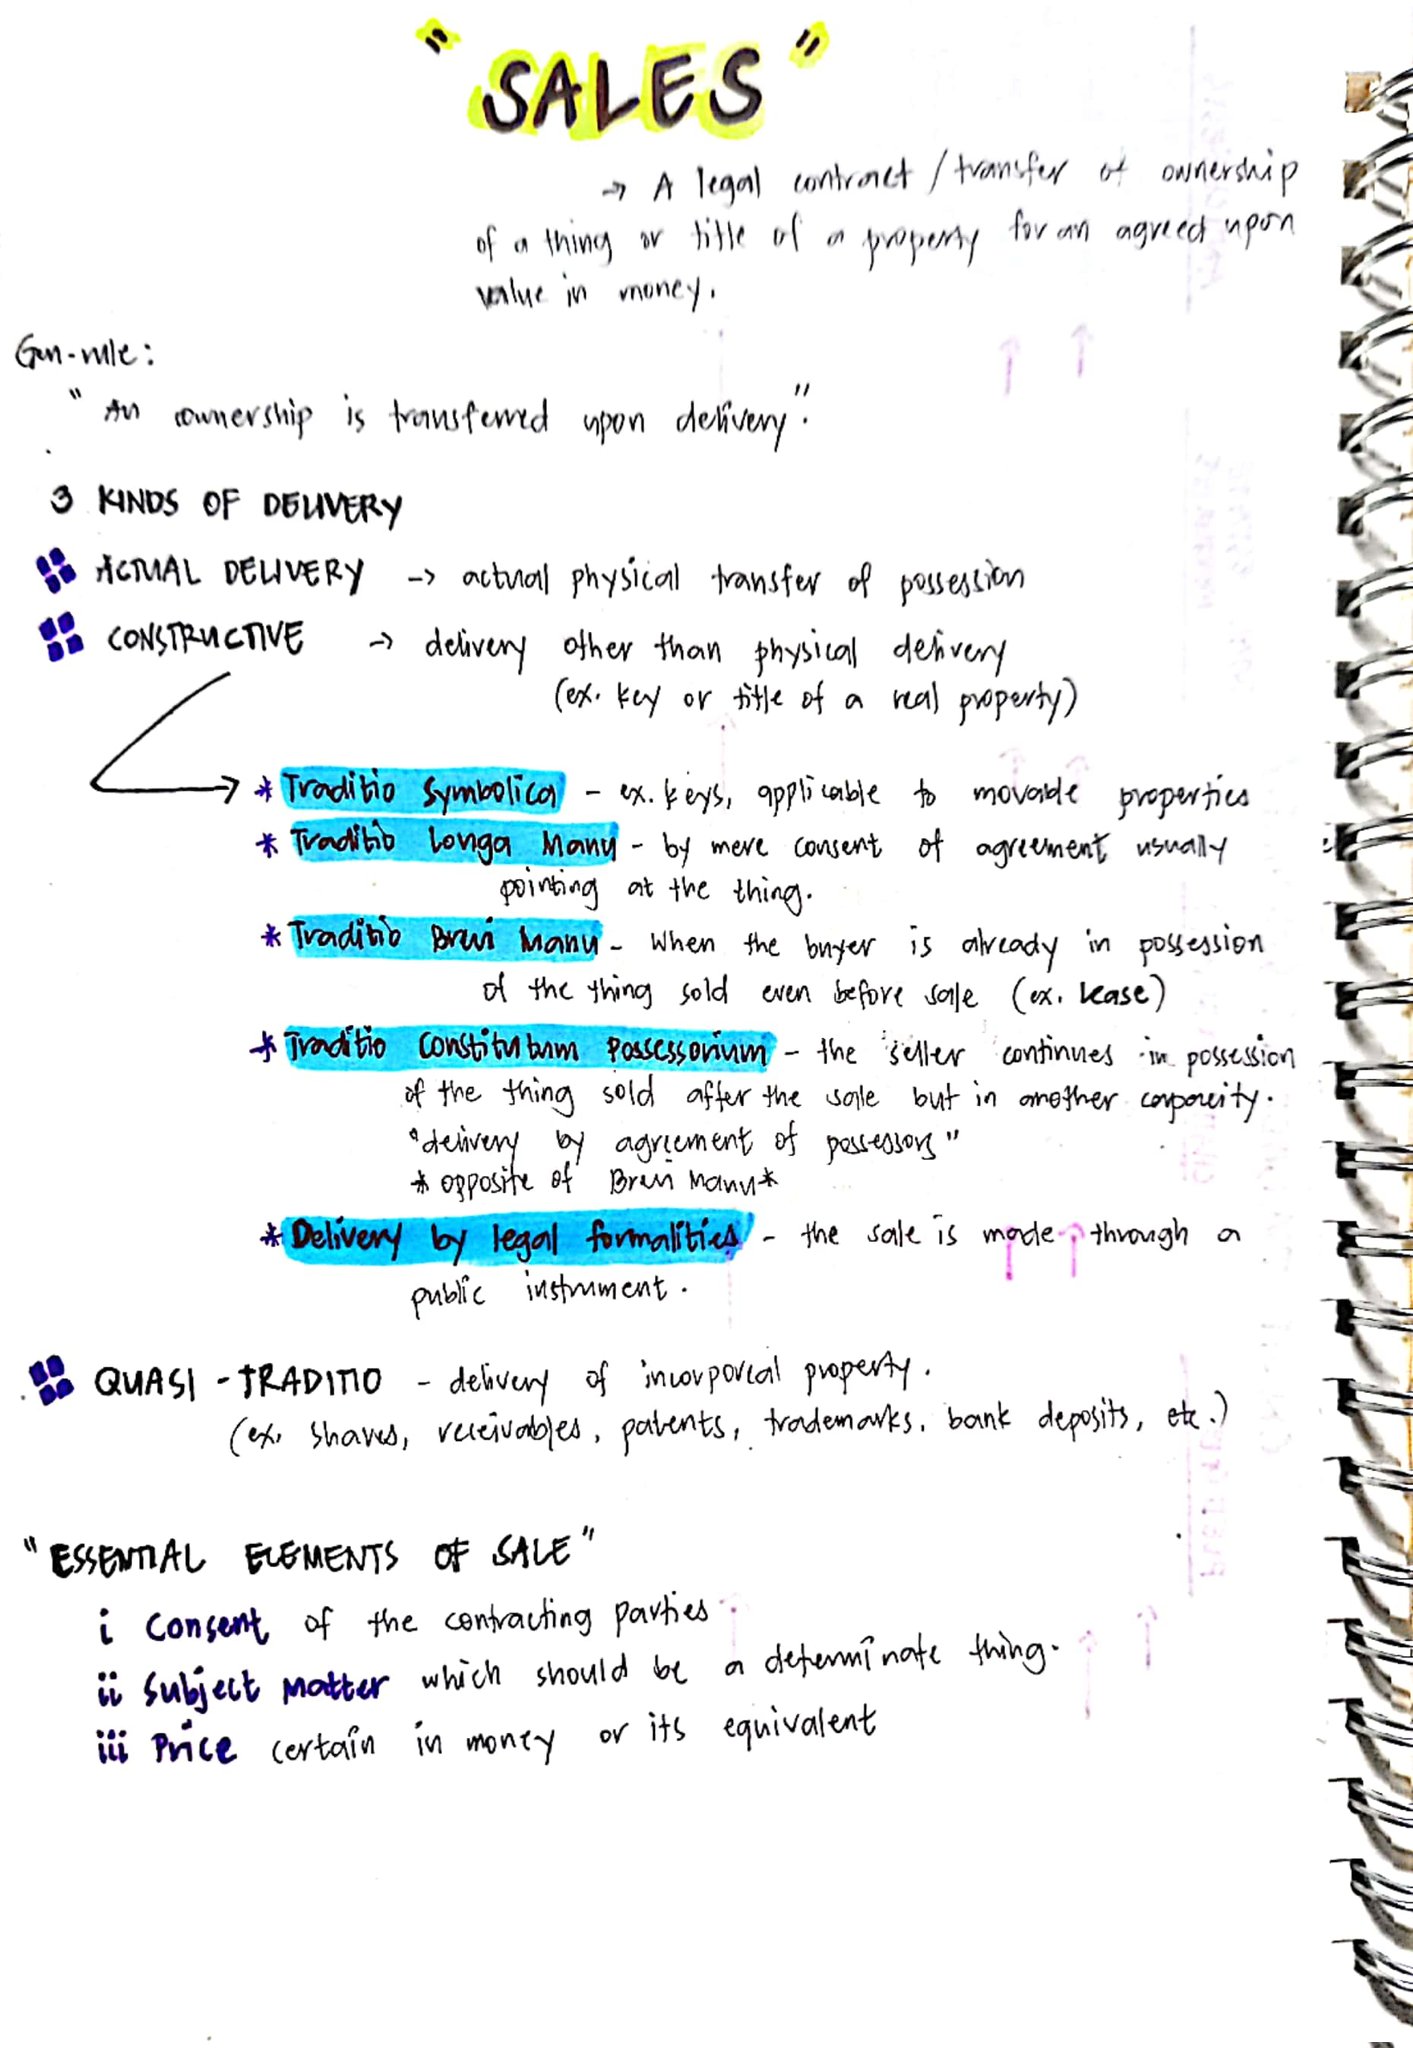 "SALES"
→ A legal contract/transfer of ownership
of a thing or title of a property for an agreed upon
value in money.
Gen-rule:
"An ownership is transferred upon delivery".
3 KINDS OF DELIVERY
ACTUAL DELIVERY → actual physical transfer of possession
CONSTRUCTIVE → delivery other than physical delivery
(ex. key or title of a real property)
* Traditio Symbolica - ex. keys, applicable to movable properties
* Traditio Longa Manu - by mere consent of agreement usually
pointing at the thing.
* Traditio Brevi Manu - when the buyer is already in possession
of the thing sold even before sale (ex. lease)
* Traditio Constitutum Possessorium - the seller continues in possession
of the thing sold after the sale but in another capacity.
"delivery by agreement of possessors"
* opposite of Brevi Manu *
* Delivery by legal formalities - the sale is made through a
public instrument.
QUASI-TRADITIO - delivery of incorporeal property.
(ex. shares, receivables, patents, trademarks, bank deposits, etc.)
"ESSENTIAL ELEMENTS OF SALE"
i Consent of the contracting parties
ii Subject Matter which should be a determinate thing.
iii Price certain in money or its equivalent